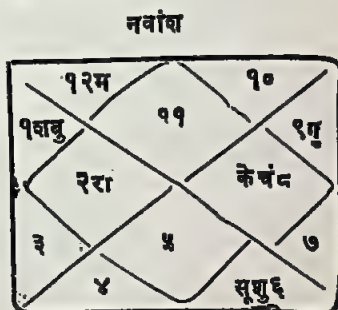 नवांश
१२म १०
११
१शबु ९गु
२रा केचं८
३ ५ ७
४ सूशु६